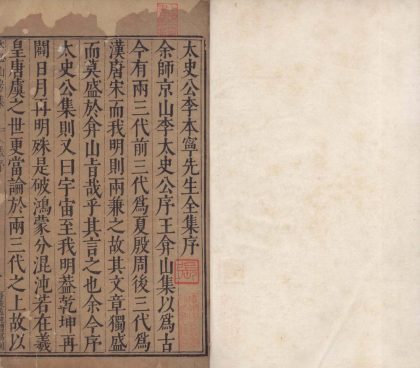 太史公李本寧先生全集序
余師京山李太史公序王弇山集以為古
今有兩三代前三代為夏殷周後三代為
漢唐宋而我明則兩兼之故其文章獨盛
而莫盛於弇山旨哉乎其言之也余今序
太史公集則又曰宇宙至我明蓋乾坤再
闢日月再明殊是破鴻蒙分混沌若在羲
皇唐虞之世更當論於兩三代之上故以